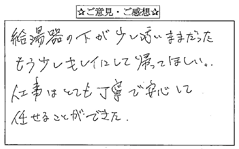 ☆ご意見・ご感想☆
給湯器の下が少し汚いままだった
もう少しキレイにして帰ってほしい。
工事はとても丁寧で安心して
任せることができた。